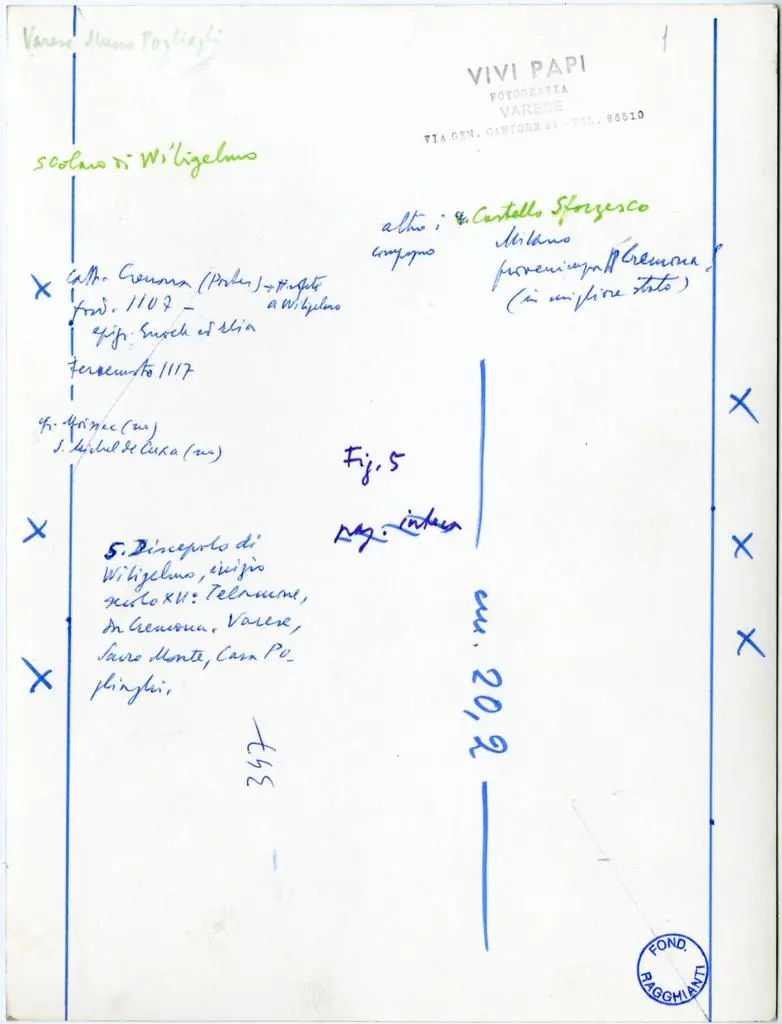 Varese Museo Pogliaghi
1
VIVI PAPI
FOTOGRAFIA
VARESE
VIA GEN. CANTORE - TEL. 86610
scolaro di Wiligelmo
altro: Castello Sforzesco
compagno Milano
Cremona
(in migliore stato)
Catt. Cremona (Portale)
fond. 1107 - a Wiligelmo
epigr. Enoch ed Elia
Terremoto 1117
cfr. Moissac (no)
S. Michel de Cuxa (no)
Fig. 5
pag. intera
5. Discepolo di
Wiligelmo, inizio
secolo XII: Telamone,
da Cremona. Varese,
Sacro Monte, Casa Po-
gliaghi.
cm. 20,2
347
FOND.
RAGGHIANTI